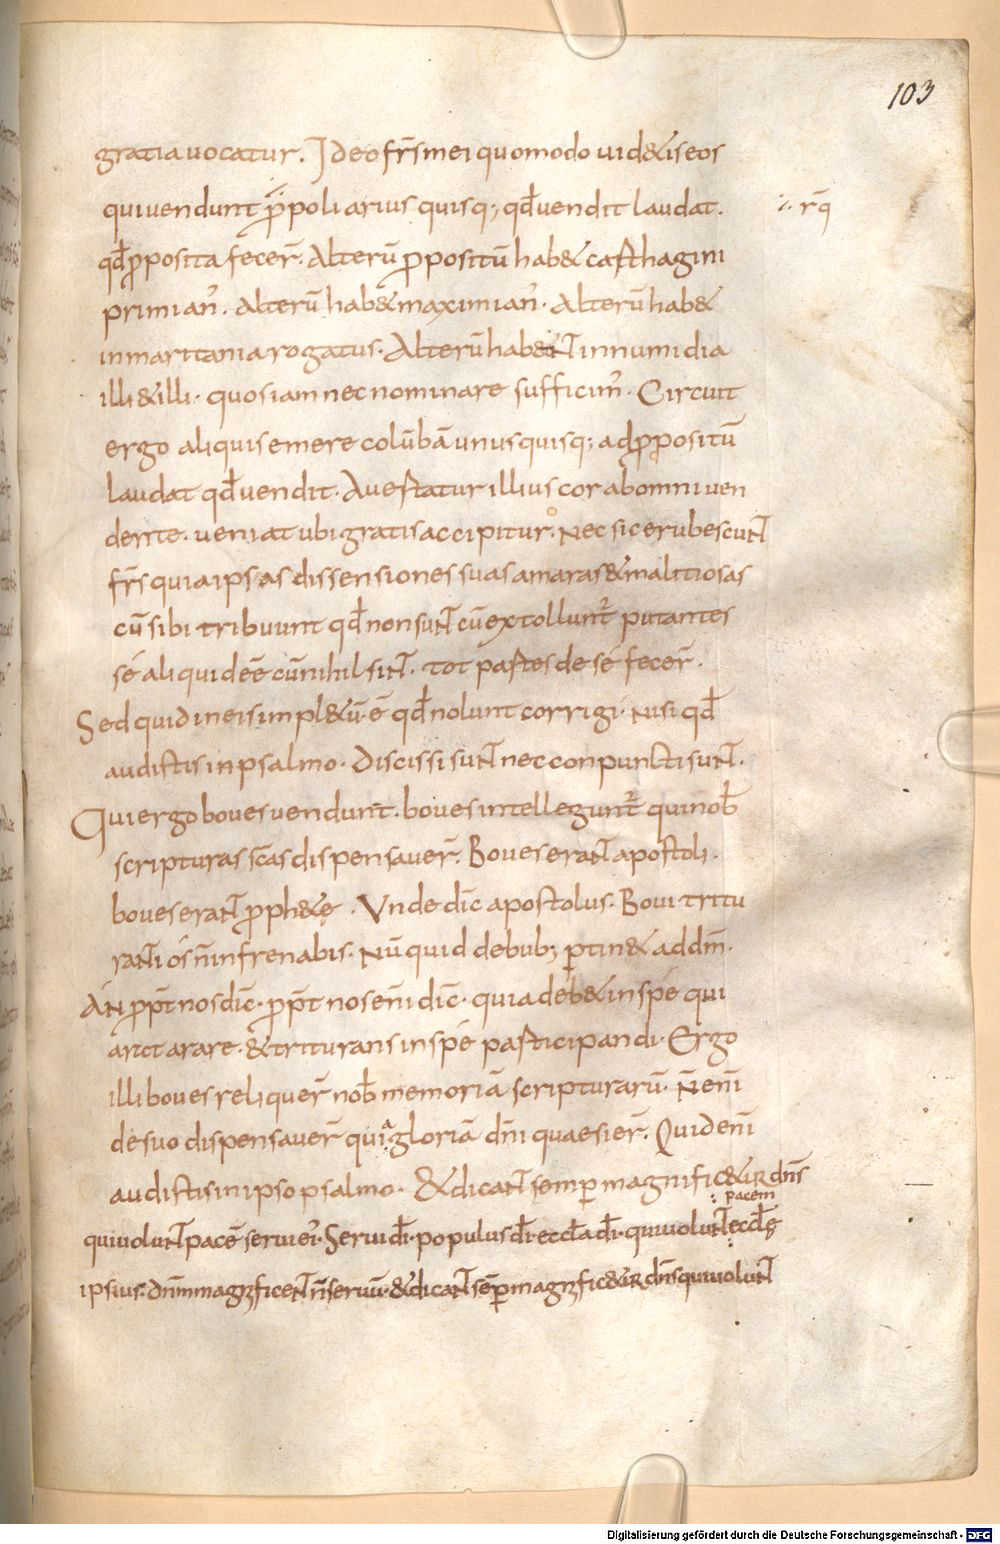 103
gratia uocatur. Ideo fr̄s mei quomodo uid&is eos
qui uendunt p̄poli arius quisq; qd̄ uendit laudat. rq̄
qd̄ pposita fecer̄. Alterū ppositū hab& carthagini
primian'. Alterū hab& maximian'. Alterū hab&
in maritania rogatus. Alterū hab&NT in numidia
illi & illi. quos iam nec nominare sufficim'. Circuit
ergo aliquis emere colūbā unusquisq; ad ppositū
laudat qd̄ uendit. Auertatur illius cor ab omni uen
dente. ueniat ubi gratis accipitur. Nec sic erubescunt
fr̄s quia ipsas dissensiones suas amaras & malitiosas
cū sibi tribuunt qd̄ non sunt cū extollunt̄ putantes
sé aliquid eē cū nihil sint. tot partes de sé fecer̄.
Sed quid in eis impl&ū ē qd̄ nolunt corrigi. Nisi qd̄
audistis in psalmo. Discissi sunt nec conpuncti sunt.
Qui ergo boues uendunt. boues intellegunt̄ qui nob̄
scripturas sc̄as dispensauer̄. Boues erant apostoli.
boues erant pph&ę. Vnde dic̄ apostolus. Boui tritu
ranti ós n̄ infrenabis. Nūquid de bub; ptin& ad dm̄.
ÁN ppt̄ nos dic̄. ppt̄ nos eni̅ dic̄. quia deb& in spé qui
arat arare. & triturans in spé participandi. Ergo
illi boues reliquer̄ nob̄ memoriā scripturarū. N̄ eni̅
de suo dispensauer̄ quia gloriā dn̄i quaesier̄. Quid eni̅
audistis in ipso psalmo. & dicant semp magnific&ur dn̄s
pacem
qui uolunt pacē serui ei'. Serui dī. populus dī. eccla dī. qui uolunt eccłę
ipsius. dn̄m magnificent n̄ seruū. & dicant sēp magnific&ur dn̄s qui uolunt
Digitalisierung gefördert durch die Deutsche Forschungsgemeinschaft - DFG